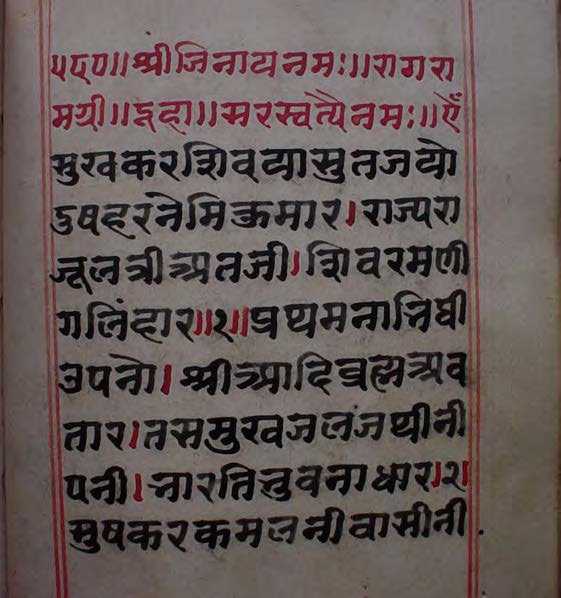 ॥श्रीजिनायनमः॥रागरा
मग्री॥दूहा॥सरस्वत्यैनमः॥ऐँ
सुखकरशिवद्यासुतजयो
दुषहरनेमिकुमार।राज्यरा
जूलत्रीअतजी।शिवरमणी
गलिंहार॥१॥प्रथमनाभिथी
उपनो।श्रीआदिब्रह्मअव
तार।तसमुखजलंजथीनी
पनी।भारतिभुवनाधार।२।
सुषकरकमलनीवासीनी